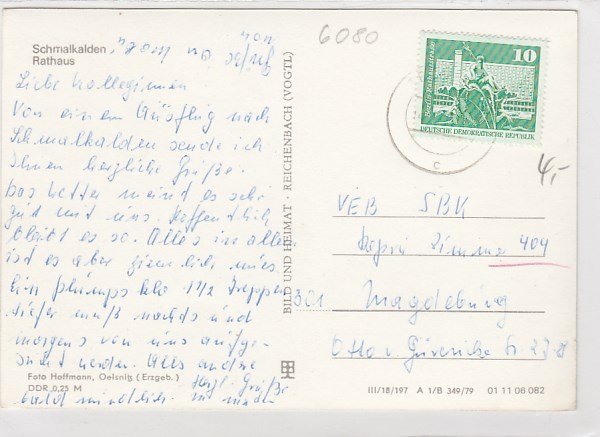 6080
Schmalkalden
Rathaus
Liebe Kolleginnen
Von einem Ausflug nach
Schmalkalden sende ich
Ihnen herzliche Grüße.
Das Wetter meint es sehr
gut mit uns. Hoffentlich
bleibt es so. Alles in allem
ist es aber ziemlich mies.
Ein Plumps Klo 1 1/2 Treppen
tiefer muß nachts und
morgens von uns aufge-
sucht werden. Alles andre
bald mündlich.
Herzl. Grüße
BILD UND HEIMAT · REICHENBACH (VOGTL)
Foto Hoffmann, Oelsnitz (Erzgeb.)
DDR 0,25 M
10
Berlin-Rathausstraße
DEUTSCHE DEMOKRATISCHE REPUBLIK
c
4,-
VEB SBK
Zimmer 404
301 Magdeburg
Otto v. Guericke Str 27-
III/18/197 A 1/B 349/79 01 11 06 082